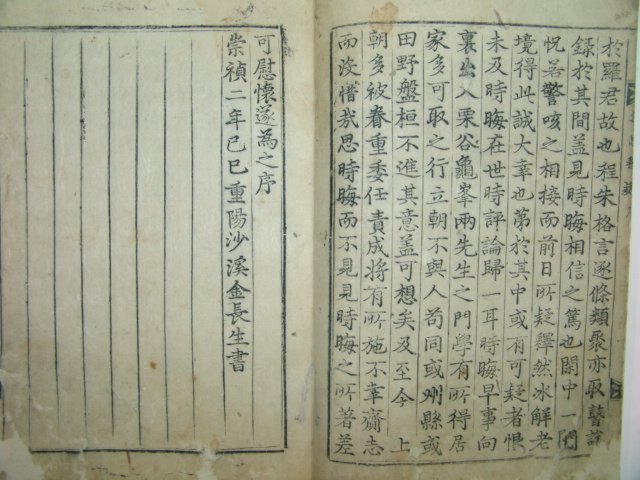 於羅君故也程朱格言逐條類聚亦取瞽說
錄於其間盖見時晦相信之篤也閒中一閱
怳若警咳之相接而前日所疑釋然冰解老
境得此誠大幸也第於其中或有可疑者恨
未及時晦在世時評論歸一耳時晦早事向
裏出入栗谷龜峯兩先生之門學有所得居
家多可取之行立朝不與人苟同或州縣或
田野盤桓不進其意盖可想矣及至今 上
朝多被眷重委任責成將有所施不幸齎志
而沒惜哉思時晦而不見見時晦之所著差
可慰懷遂為之序
崇禎二年己巳重陽沙溪金長生書